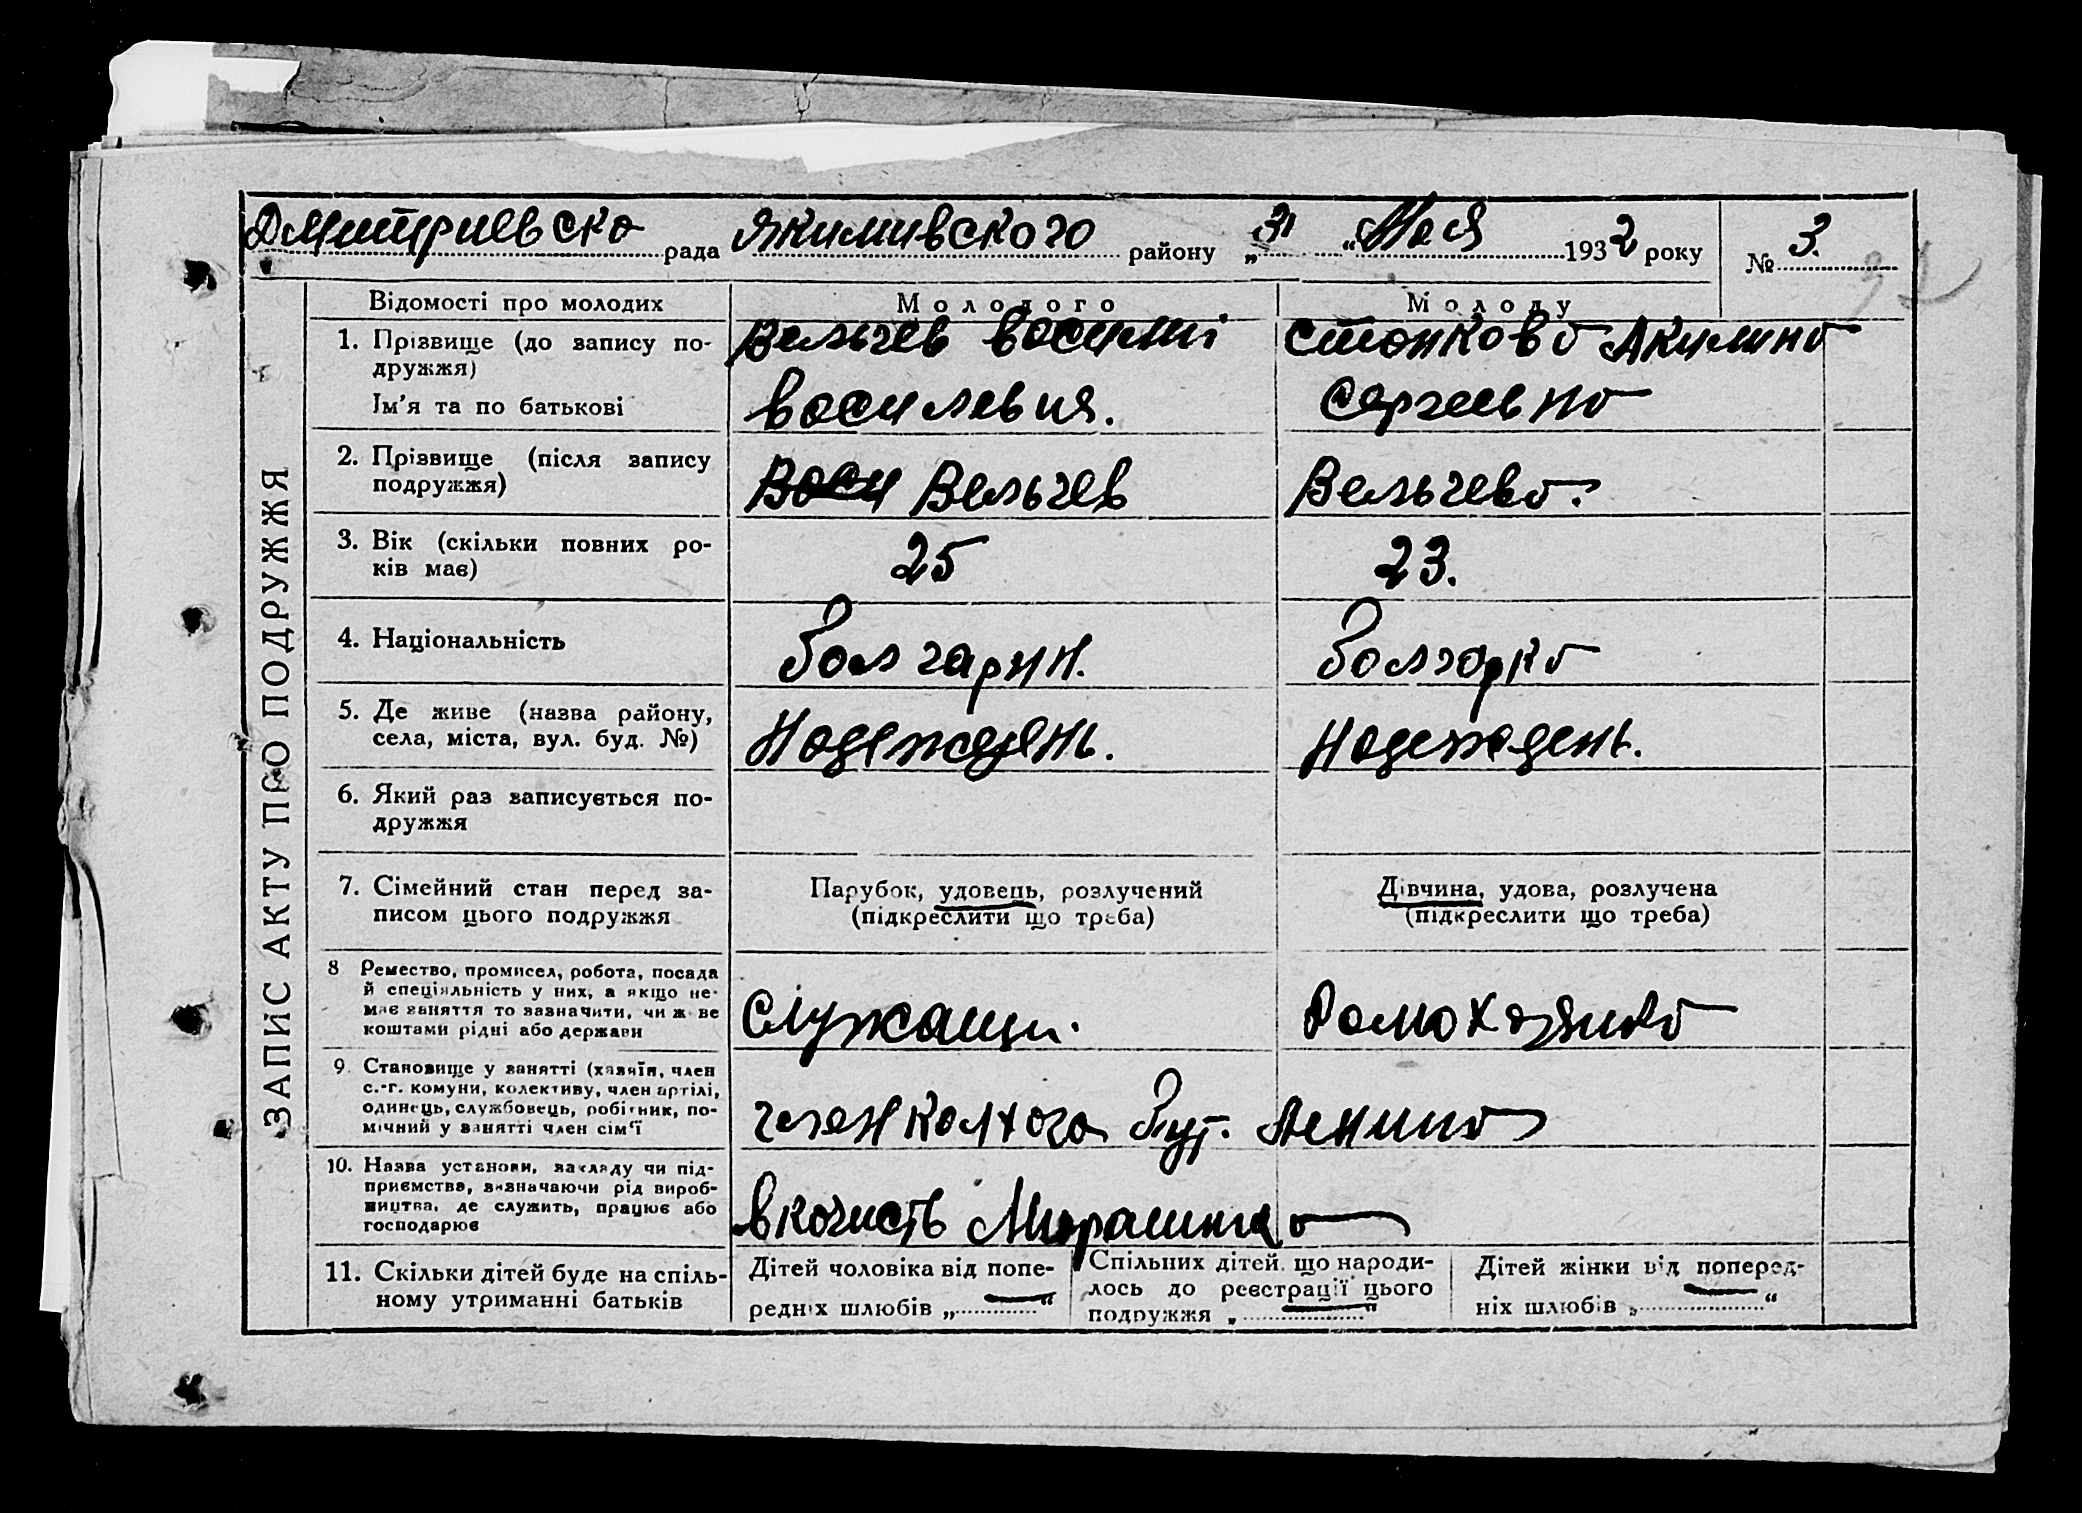 Дмитриевско рада Якимивского району „31“ Мая 1932 року № 3.
ЗАПИС АКТУ ПРО ПОДРУЖЖЯ
Відомості про молодих
Молодого
Молоду
1. Прізвище (до запису по-
дружжя)
Ім'я та по батькові
Вельчев Василий
Василевич.
Стонкова Акилина
Сергеевна
2. Прізвище (після запису
подружжя)
Васи Вельчев
Вельчева.
3. Вік (скільки повних ро-
ків має)
25
23.
4. Національність
Болгарин.
Болгарка
5. Де живе (назва району,
села, міста, вул. буд. №)
Надеждень.
Надеждень.
6. Який раз записується по-
дружжя
7. Сімейний стан перед за-
писом цього подружжя
Парубок, удовець, розлучений
(підкреслити що треба)
Дівчина, удова, розлучена
(підкреслити що треба)
8 Ремество, промисел, робота, посада
й спеціяльність у них, а якщо не-
має заняття то зазначити, чи ж ве
коштами рідні або держави
Служащи.
Домохозяйка
9. Становище у занятті (хазяїн, член
с.-г. комуни, колективу, член артілі,
одинець, службовець, робітник, по-
мічний у занятті член сім'ї
член колхоза Пут. Ленина
10. Назва установи, закладу чи під-
приємства, зазначаючи рід вироб-
ництва, де служить, працює або
господарює
11. Скільки дітей буде на спіль-
ному утриманні батьків
Дітей чоловіка від попе-
редніх шлюбів „—“
Спільних дітей, що народи-
лось до реєстрації цього
подружжя „—“
Дітей жінки від поперед-
ніх шлюбів „—“